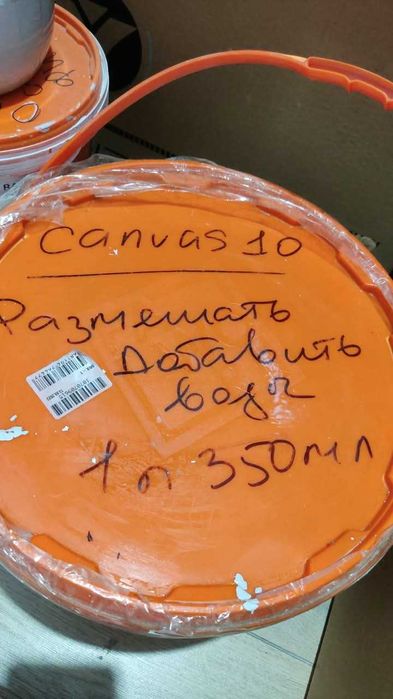 Canvas 10
Размешать
Добавить
воды
1 л 350 мл